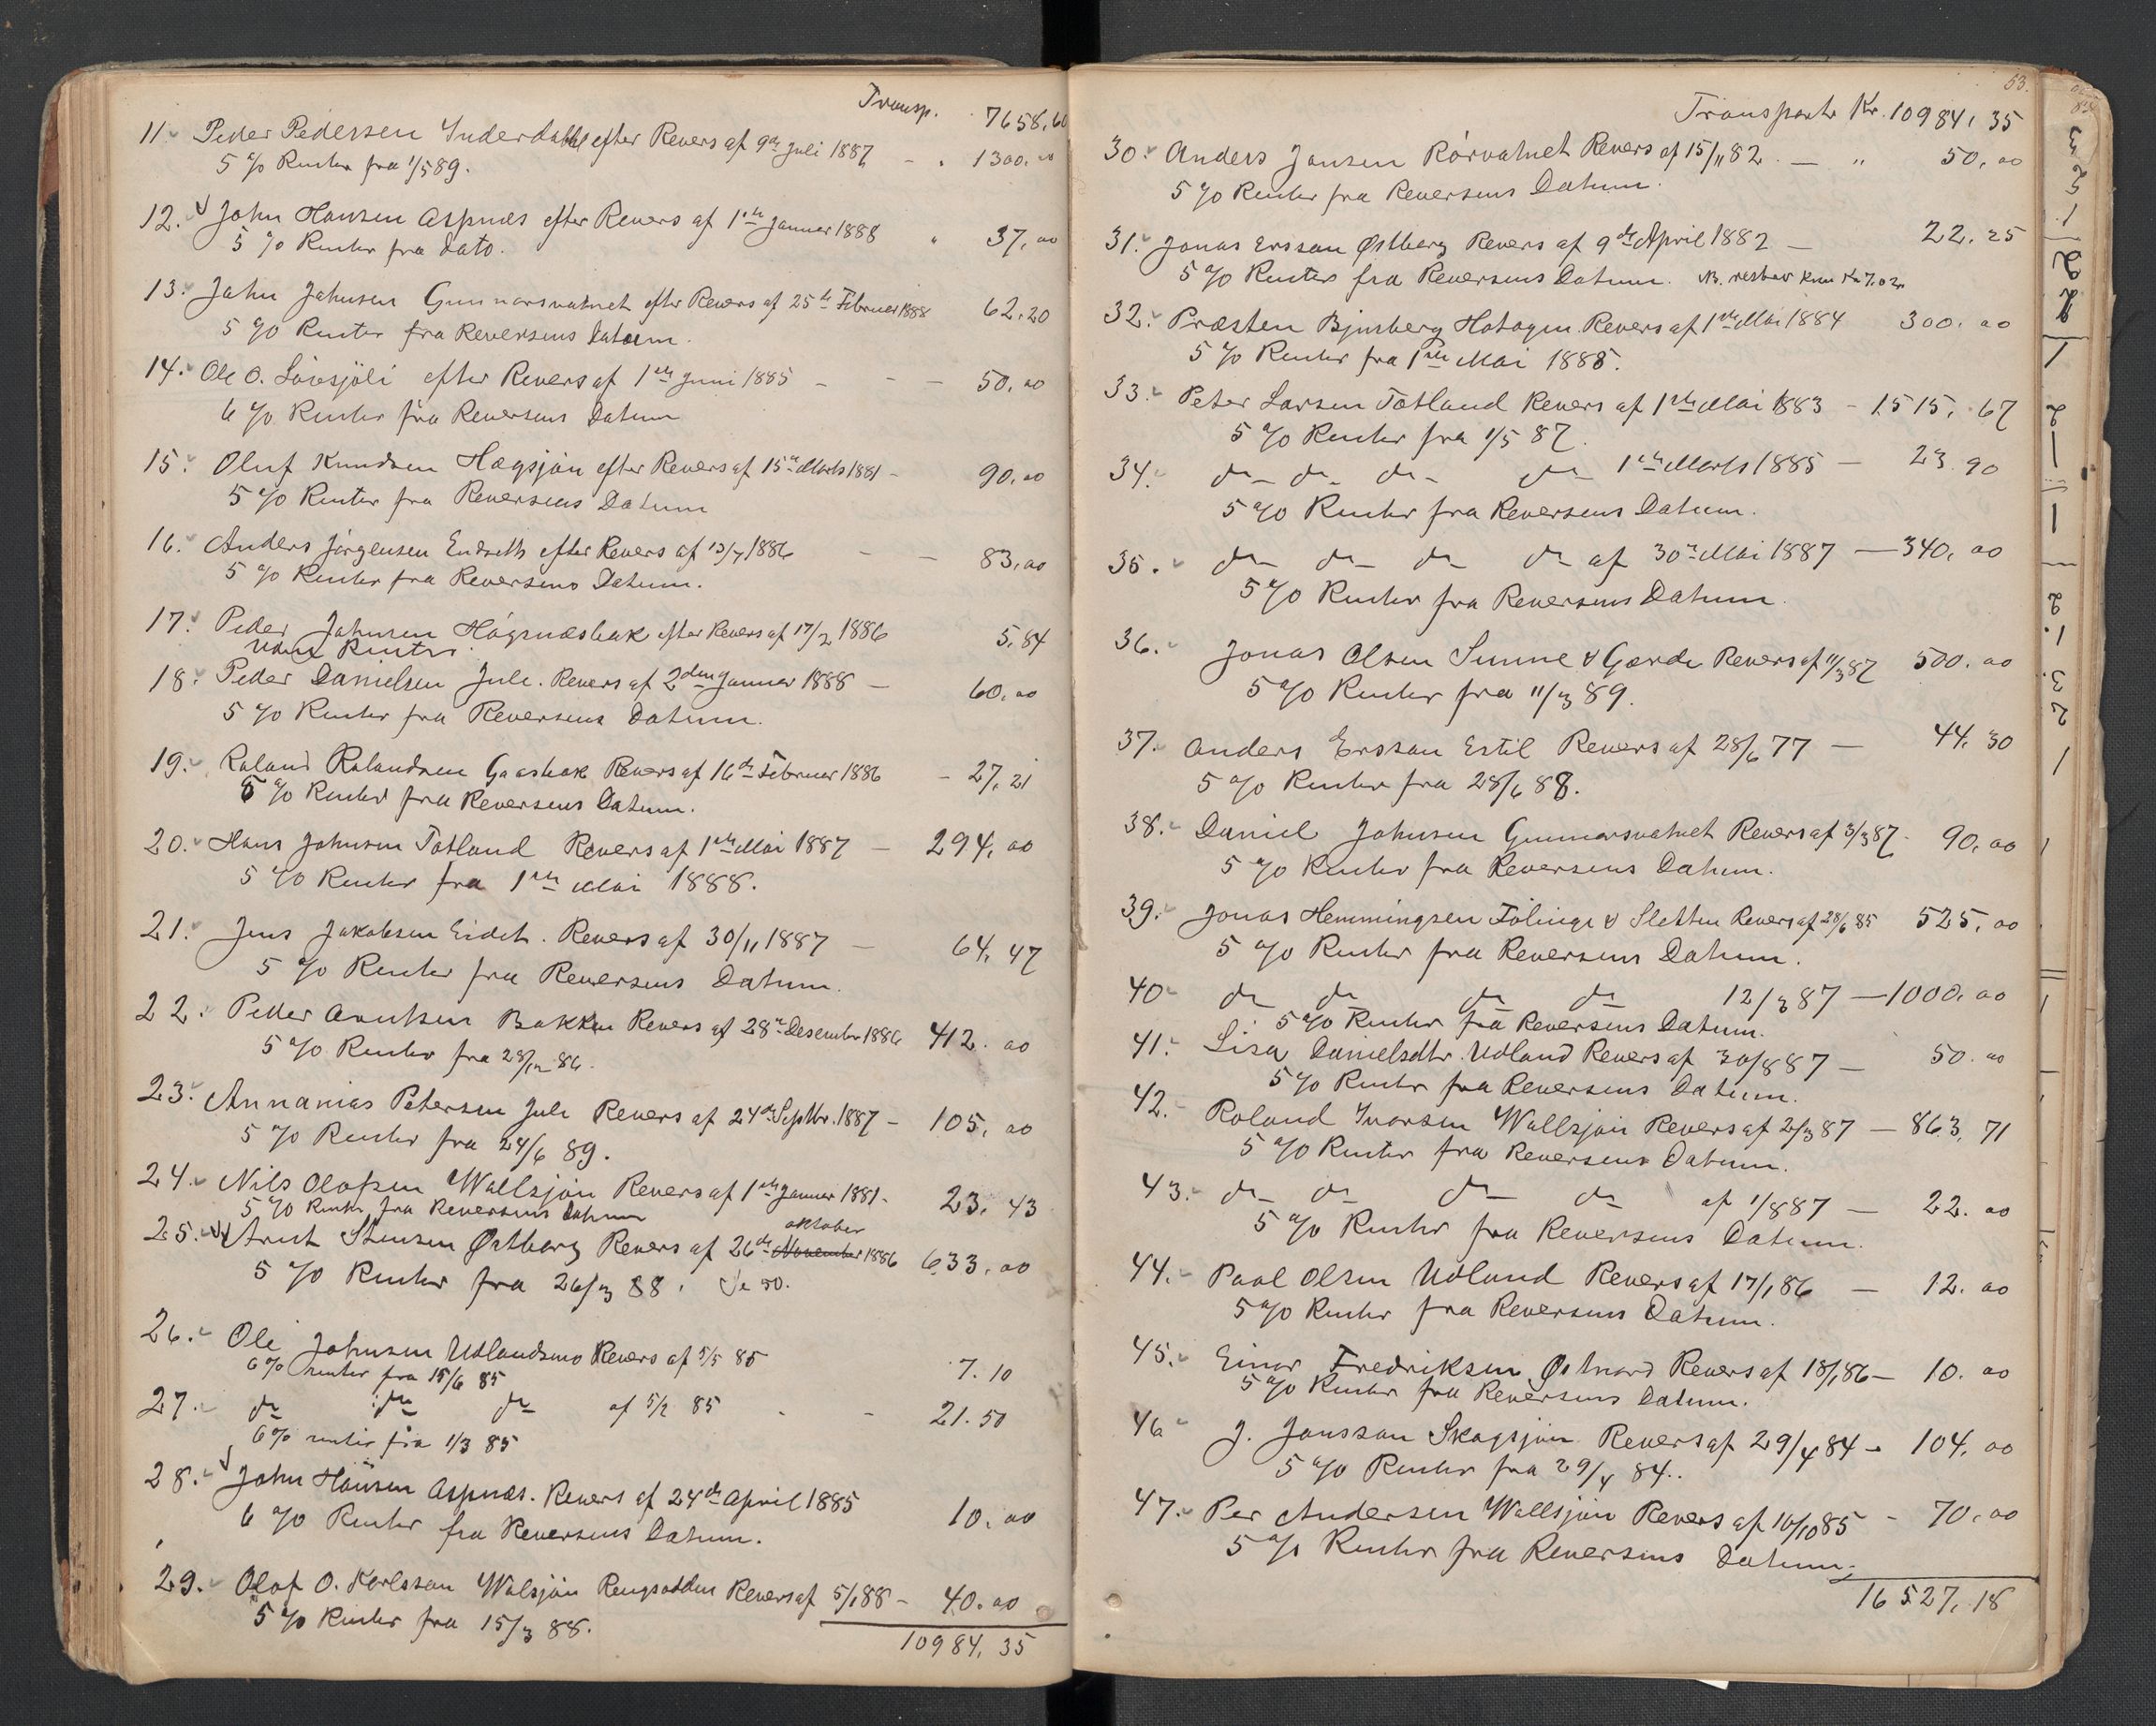 Transp. 7658,60
11. Peder Pedersen Inderdahl efter Revers af 9de Juli 1887 - " 1300.00
5 % Renter fra 1/5 89.
12. John Hansen Aspnæs efter Revers af 1ste Januar 1888 " 37,00
5 % Renter fra Dato.
13. John Johnsen Gunnarsvatnet efter Revers af 25de Februar 1888 62,20
5 % Renter fra Reversens Datum.
14. Ole O. Lövsjöli efter Revers af 1ste Juni 1885 - - - 50,00
6 % Renter fra Reversens Datum
15. Oluf Knudsen Hægsjön efter Revers af 15de Marts 1881 - 90,00
5 % Renter fra Reversens Datum
16. Anders Jörgensen Endseth efter Revers af 13/7 1886 - - 83,00
5 % Renter fra Reversens Datum.
17. Peder Johnsen Högsnæsbak efter Revers af 17/2 1886 5,84
Uden Renter.
18. Peder Danielsen Jule. Revers af 2den Januar 1888 - 60,00
5 % Renter fra Reversens Datum.
19. Roland Rolandsen Gaasbak Revers af 16de Februar 1886 - 27,21
5 % Renter fra Reversens Datum.
20. Hans Johnsen Totland Revers af 1ste Mai 1887 - 294,00
5 % Renter fra 1ste Mai 1888.
21. Jens Jakobsen Eidet. Revers af 30/11 1887 - 64,47
5 % Renter fra Reversens Datum.
22. Peder Arntsen Bakken Revers af 28de Desember 1886 412.00
5 % Renter fra 28/12 86.
23. Annanias Petersen Jule Revers af 24de Septbr. 1887 - 105,00
5 % Renter fra 24/6 89.
24. Nils Olofsen Wallsjön Revers af 1ste Januar 1881 - 23,43
5 % Renter fra Reversens Datum
oktober
25. Arnt Stensen Østborg Revers af 26de November 1886 633,00
5 % Renter fra 26/3 88. Se 50.
26. Ole Johnsen Udlandsmo Revers af 5/5 85 7.10
6 % renter fra 15/6 85
27. do do do af 5/2 85 - - 21.50
6 % renter fra 1/3 85
28. John Hansen Aspnæs. Revers af 24de April 1885 10,00
6 % Renter fra Reversens Datum.
29. Olof O. Karlsson Walsjön Rengsodden Revers af 5/1 88 - 40.00
5 % Renter fra 15/3 88.
10984,35
53.
Transport Kr. 10984,35
30. Anders Jonsen Rörvatnet Revers af 15/11 82. - " 50,00
5 % Renter fra Reversens Datum.
31. Jonas Ersson Østberg Revers af 9de April 1882 - 22,25
5 % Renter fra Reversens Datum. NB. restar kun Kr 7.02
32. Præsten Bjursberg Hotagen Revers af 1ste Mai 1884 300.00
5 % Renter fra 1ste Mai 1888.
33. Peter Larsen Totland Revers af 1ste Mai 1883 - 1515,67
5 % Renter fra 1/5 87.
34. do do do do 1ste Marts 1885 - 23.90
5 % Renter fra Reversens Datum.
35. do do do do af 30de Mai 1887 - 340,00
5 % Renter fra Reversens Datum.
36. Jonas Olsen Sunne v Gærde Revers af 11/3 87 500.00
5 % Renter fra 11/3 89.
37. Anders Ersson Estil Revers af 28/6 77 - 44,30
5 % Renter fra 28/6 88.
38. Daniel Johnsen Gunnarsvatnet Revers af 3/3 87 - 90,00
5 % Renter fra Reversens Datum.
39. Jonas Hemmingsen Fölinge v Sletten Revers af 28/6 85 525,00
5 % Renter fra Reversens Datum.
40. do do do do 12/3 87 - 1000,00
5 % Renter fra Reversens Datum.
41. Lisa Danielsdtr. Udland Revers af 30/8 87 - 50.00
5 % Renter fra Reversens Datum.
42. Roland Ivarsen Wallsjön Revers af 2/3 87 - 863,71
5 % Renter fra Reversens Datum.
43. do do do do af 1/8 87 - 22.00
5 % Renter fra Reversens Datum.
44. Paul Olsen Udland Revers af 17/1 86 - 12.00
5 % Renter fra Reversens Datum.
45. Einar Fredriksen Østnord Revers af 18/1 86 - 10.00
5 % Renter fra Reversens Datum.
46 J. Jonsson Skogsjön Revers af 29/4 84 - 104,00
5 % Renter fra 29/4 84.
47. Per Andersen Wallsjön Revers af 10/10 85 - 70,00
5 % Renter fra Reversens Datum.
16527,18